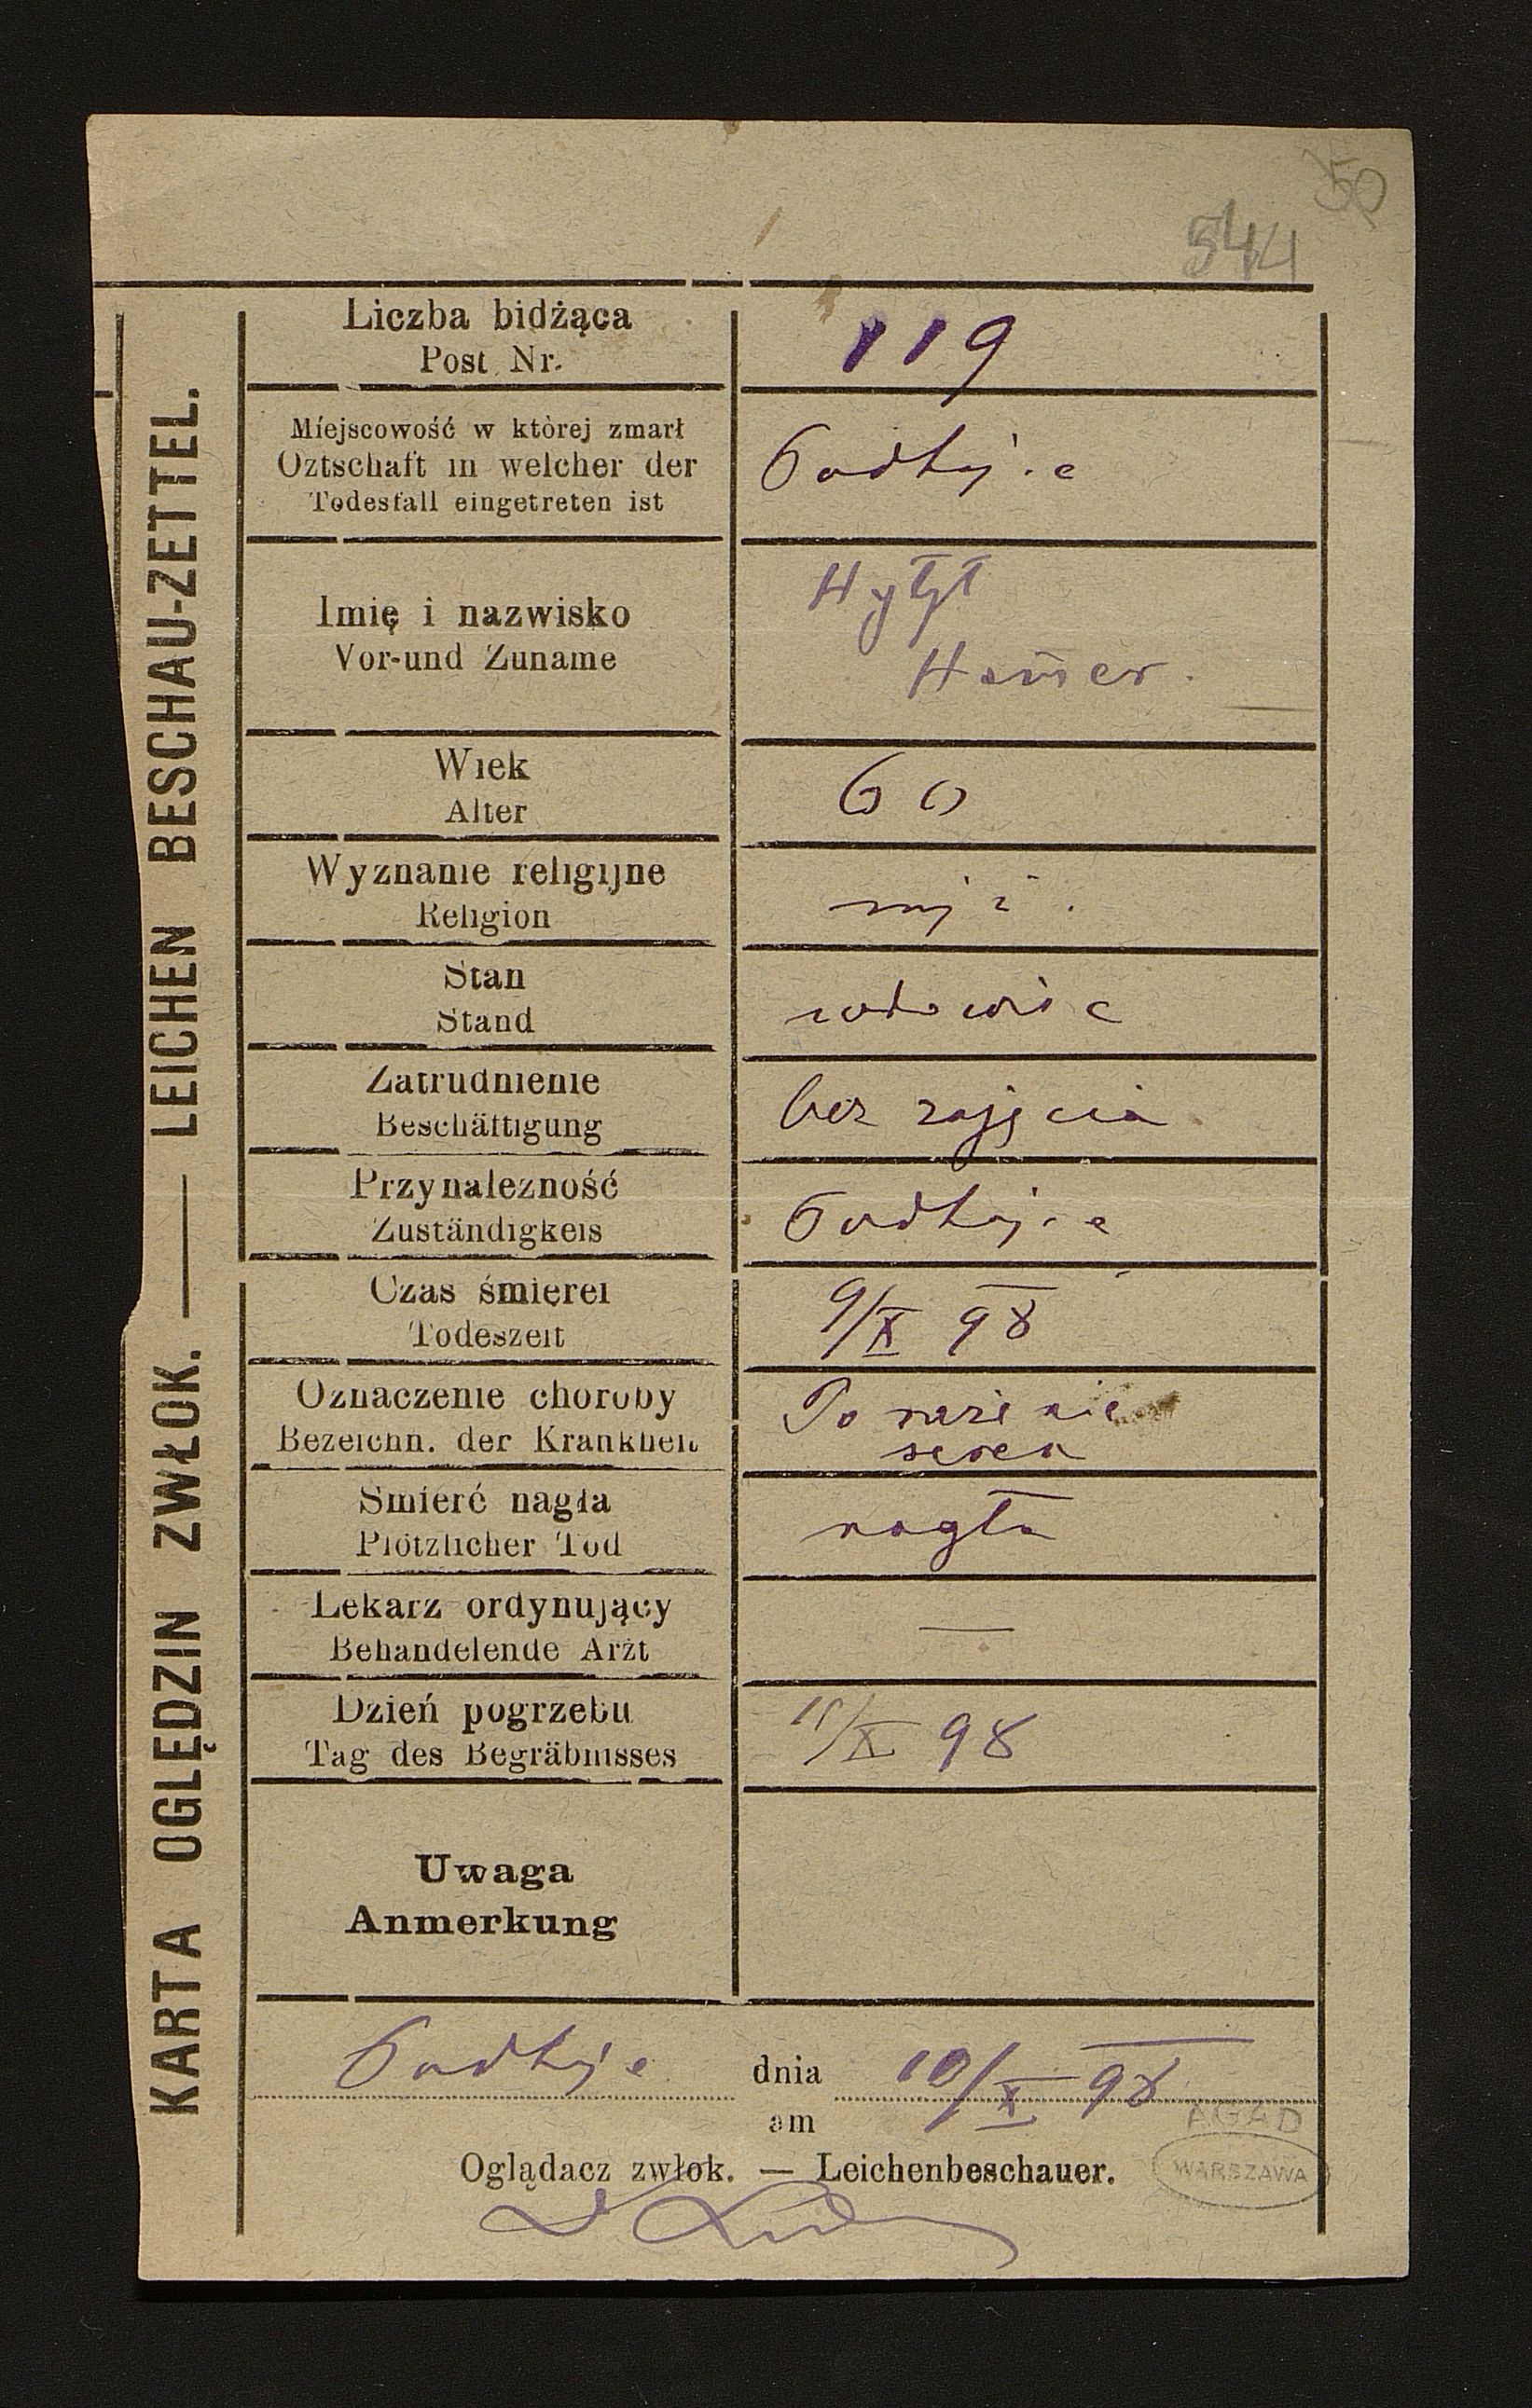 50
544
KARTA OGLĘDZIN ZWŁOK. — LEICHEN BESCHAU-ZETTEL.
Liczba bidżąca
Post Nr.
119
Miejscowość w której zmarł
Oztschaft in welcher der
Todesfall eingetreten ist
Podhajce
Imię i nazwisko
Vor-und Zuname
Wiek
Alter
60
Wyznanie religijne
Religion
mojż.
Stan
Stand
wdowiec
Zatrudnienie
Beschäftigung
bez zajęcia
Przynalezność
Zuständigkeis
Podhajce
Czas śmierei
Todeszeit
9/X 98
Oznaczenie choroby
Bezeichn. der Krankheit
Porażenie
serca
Smierć nagła
Plötzlicher Tod
nagła
Lekarz ordynujący
Behandelende Arżt
—
Dzień pogrzebu
Tag des Begräbnisses
11/X 98
Uwaga
Anmerkung
Podhajce dnia 10/X 98
am
AGAD
Oglądacz zwłok. — Leichenbeschauer.
WARSZAWA